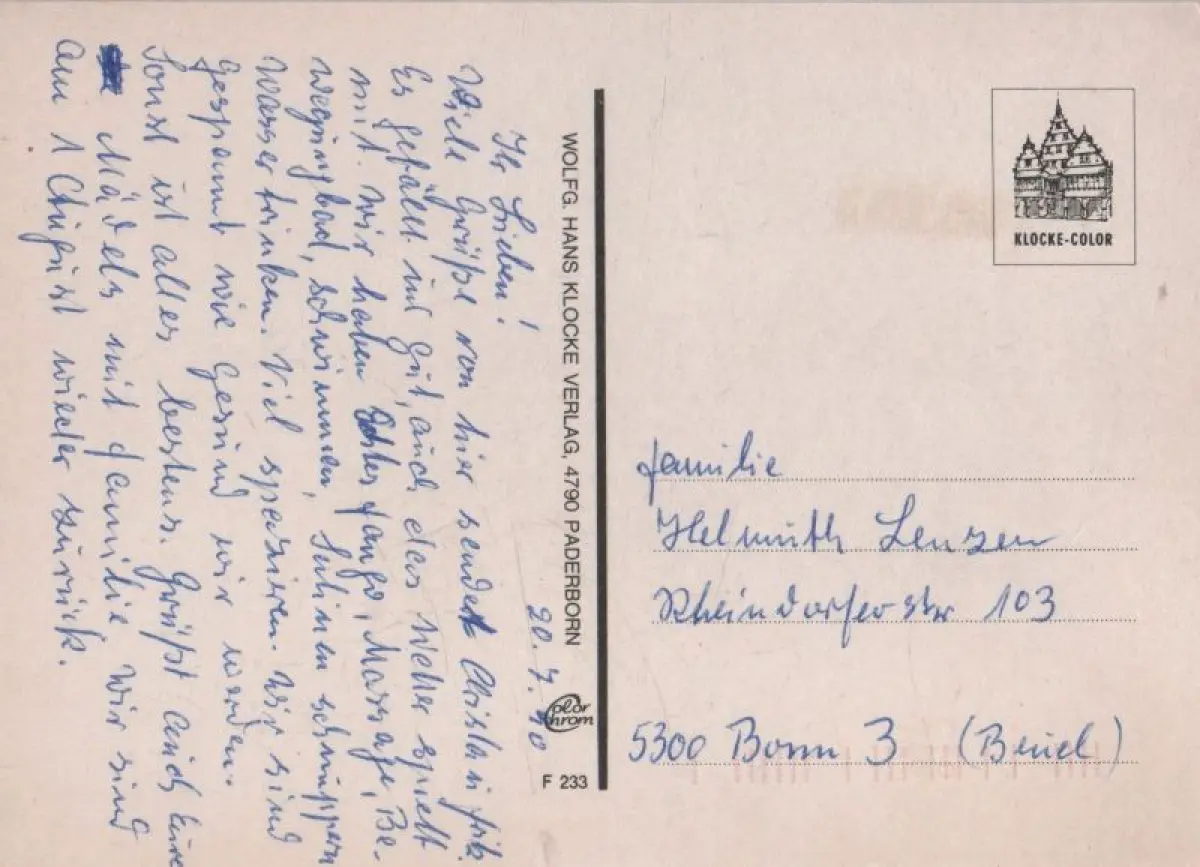 20.7.90
Ihr Lieben!
Viele Grüße von hier sendet
Es gefällt uns gut, auch das Wetter spielt
mit. Wir haben Fango, Massage, Be-
wegungbad, schwimmen, Salinen schnuppern
Wasser trinken. Viel spazieren. Wir sind
gespannt wie gesund wir werden.
Sonst ist alles bestens. Grüßt auch Eure
Mädels mit Familie Wir sind
am 1 August wieder zurück.
WOLFG. HANS KLOCKE VERLAG, 4790 PADERBORN
Color
Chrom
F 233
KLOCKE-COLOR
Familie
Helmuth Lenzen
Rheindorferstr 103
5300 Bonn 3 (Beuel)